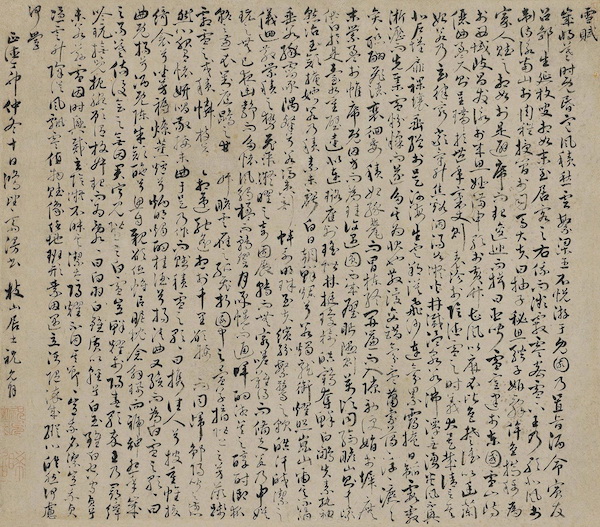 雪賦
歲將暮時既昏寒風積愁雲繁梁王不悅游于兔園乃置旨酒命賓友
召鄒生延枚叟相如末至居客之右俄而微霰零密雪下王乃歌北風於
衛詩詠南山於周雅授簡於司馬大夫曰抽子秘思騁子妍辭侔色揣稱為
寡人賦之相如於是避席而起逡巡而揖曰臣聞雪宮建於東國雪山峙
於西域岐昌發詠於來思姬滿申歌於黃竹曹風以麻衣比色楚謠以幽蘭
儷曲盈尺則呈瑞於豐年袤丈則表沴於陰德雪之時義遠矣哉請言其
始若乃玄律窮嚴氣升焦溪涸湯谷凝火井滅溫泉冰沸潭無湧炎風不興
北戶墐扉裸壤垂繒於是河海生雲朔漠飛沙連氛累靄揜日韜霞霰
淅瀝而先集雪紛糅而遂多其為狀也散漫交錯氛氳蕭索藹藹浮浮瀌瀌
奕奕聯翩飛灑徘徊委積始緣甍而冒棟終開簾而入隙初便娟於墀廡
末縈盈於帷席既因方而為珪亦遇圓而成璧眄隰則萬頃同縞瞻山則千巖
俱白於是臺如重璧逵似連璐庭列瑤階林挺瓊樹皓鶴奪鮮白鷴失素紈袖
慚冶玉顏掩姱若乃積素未虧白日朝鮮爛兮若燭龍銜燿照崑山爾其流滴
垂冰緣霤承隅粲兮若馮夷剖蚌列明珠至夫繽紛繁騖之貌皓汗皦潔之
儀迴散縈積之勢飛聚凝曜之奇固展轉而無窮嗟難得而備知若乃申娛
玩之無已夜幽靜而多懷風觸楹而轉響月承幌而通暉酌湘吳之醇酎御狐
貉之兼衣對庭鵾之雙舞瞻雲雁之孤飛折園中之萱草摘階上之芳薇踐
霜雪之交積憐枝葉之相違馳遙思於千里願接手而同歸鄒陽聞之懣
然心服有懷妍唱敬接末曲於是乃作而賦積雪之歌歌曰攜佳人兮披重幄援
綺衾兮坐芳縟燎薰爐兮炳明燭酌桂酒兮揚清曲又續而為白雪之歌歌曰
曲既揚兮酒既陳朱顏酡兮思自親願低帷以昵枕念解珮而褫紳怨年歲
之易暮傷後會之無因君寧見階上之白雪豈鮮耀於陽春歌卒王乃尋繹
吟玩撫覽扼腕顧謂枚叔起而為亂亂曰白羽雖白質以輕兮白玉雖白空守貞兮
未若茲雪因時興滅玄陰凝不昧其潔太陽曜不固其節節豈我名潔豈我貞
憑雲升降從風飄零值物賦像任地班形素因遇立污隨染成縱心皓然何慮
何營
正德二年仲冬十日 枝山居士祝允明